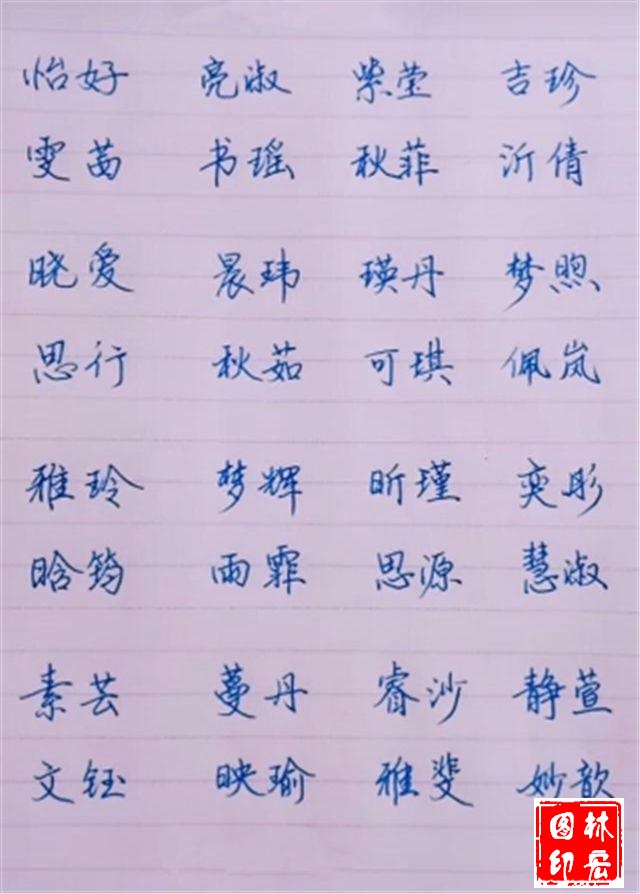 怡好 亮淑 紫莹 吉珍
雯茜 书瑶 秋菲 沂倩
晓爱 晨玮 瑛丹 梦煦
思行 秋茹 可琪 佩岚
雅玲 梦辉 昕瑾 奕彤
晗筠 雨霏 思源 慧淑
素芸 蔓丹 睿沙 静萱
文钰 映瑜 雅斐 妙歆
图林
印宏